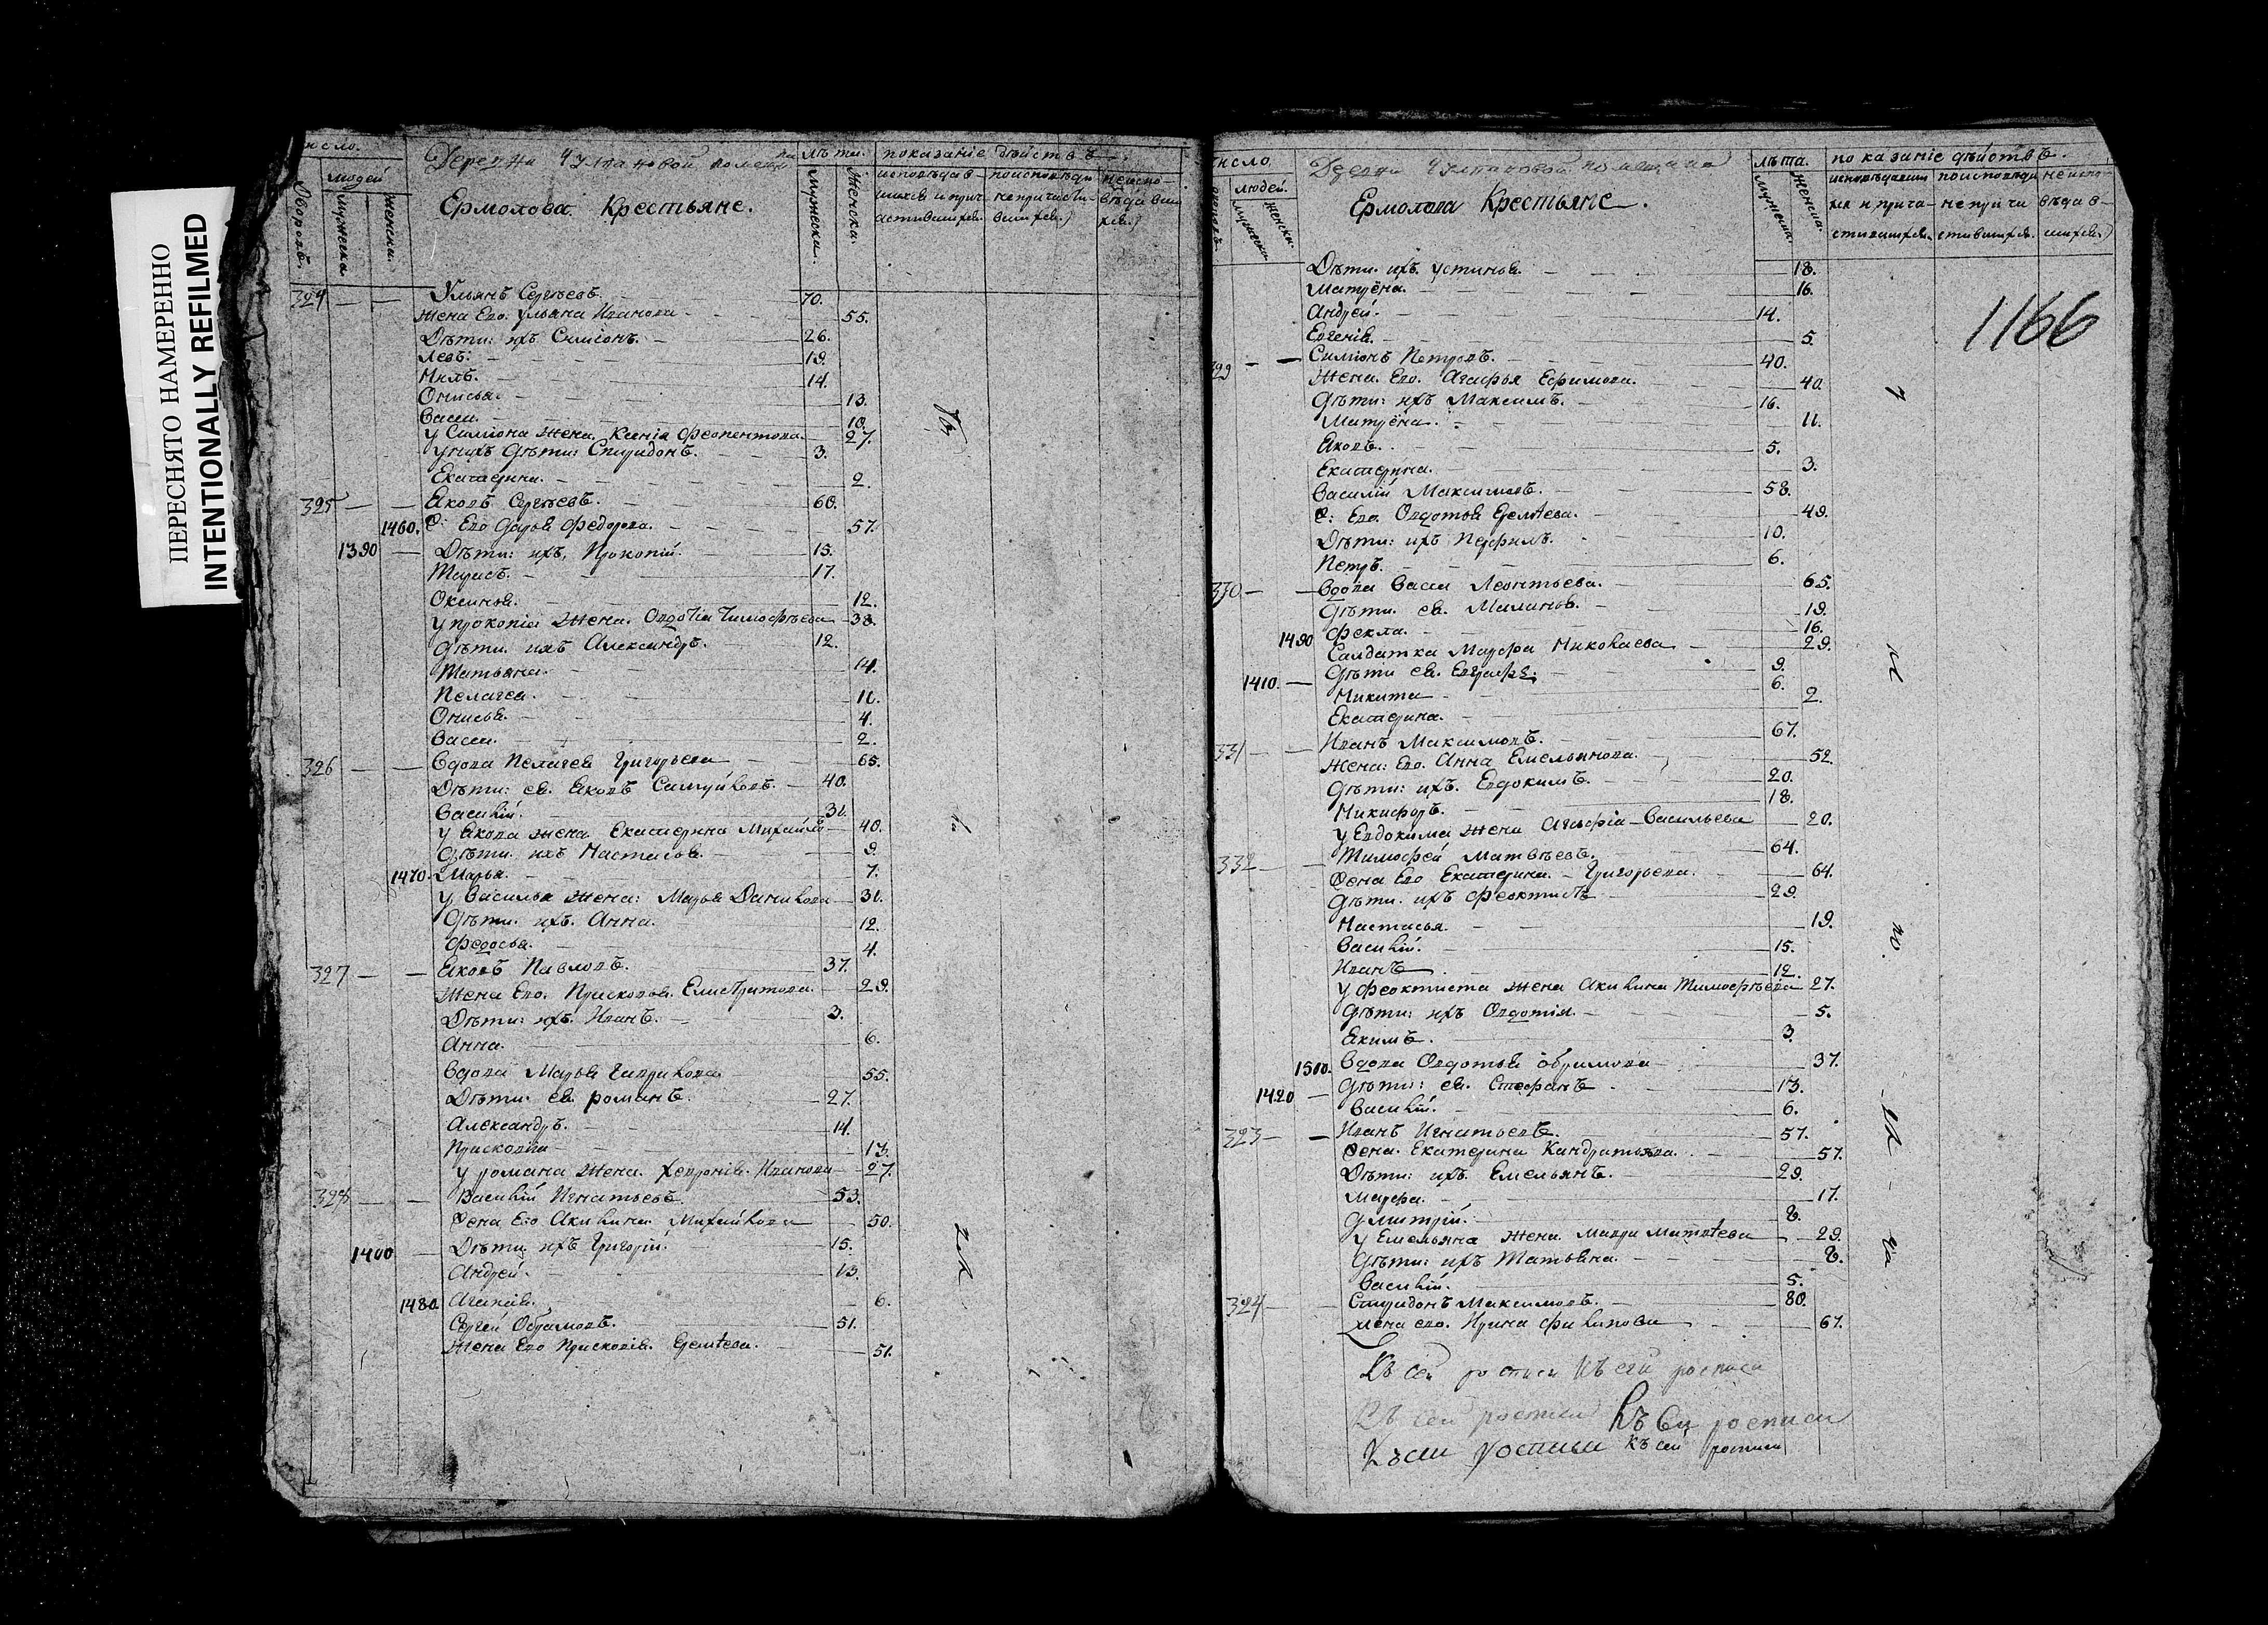 ПЕРЕСНЯТО НАМЕРЕННО
INTENTIONALLY REFILMED
число.
людей
Дворовъ.
мужеска
женска.
Деревни Чулпановой помещика
Ермолова Крестьяне.
лѣта.
мужеска.
женска.
показаніе дѣйствъ
исповѣдав-
шихся и прич-
астившихся.
поисповѣди
непричасти-
вшихся.
неиспо-
вѣдавши-
хся.
324 Ульянъ Сергѣевъ. 70.
Жена Его. Ульяна Иванова 55.
Дѣти: ихъ Симіонъ. 26.
Левъ: 19.
Нилъ. 14.
Онисья. 13.
Васса. 10.
У Симіона жена Ксенія Феопентова. 27.
У нихъ Дѣти: Спиридонъ. 3.
Екатерина. 2.
325 Яковъ Сергѣевъ. 60.
1460. Ж: Его Дарья Федорова. 57.
1390 Дѣти: ихъ, Прокопій. 15.
Тарасъ. 17.
Оксинья. 12.
У прокопія Жена. Овдотія Тимофѣева 38.
Дѣти. ихъ Александръ. 12.
Татьяна. 14.
Пелагея. 11.
Онисья. 4.
Васса. 2.
326 Вдова Пелагея Григорьева 65.
Дѣти: ея. Яковъ Самуйловъ. 40.
Василій. 31.
У Якова жена Екатерина Михайло 40.
Дѣти. ихъ Настасья. 9.
1470. Марья. 7.
У Василья жена: Марья Данилова 31.
Дѣти. ихъ. Анна. 12.
Федосья. 4.
327 Яковъ Павловъ. 37.
Жена Его. Прасковья. Елистратова. 29.
Дѣти: ихъ. Иванъ. 3.
Анна. 6.
Вдова Марья Гаврилова 55.
Дѣти. ея. романъ. 27.
Александръ. 14.
Прасковья 13.
У романа Жена. Хевронія. Иванова 27.
328 Василій Игнатьевъ. 53.
Жена Его Акилина. Михайлова 50.
1400 Дѣти ихъ Григорій. 15.
Андрей. 13.
1480. Агапія. 6.
Сергей Обрамовъ. 51.
Жена Его Прасковія. Еремѣева. 51.
число.
людей.
мужеска
женска.
Деревни Чулпановой помещика
Ермолова Крестьяне.
лѣта.
мужеска.
женска.
показаніе дѣйствъ.
исповѣдавши
хся и прича-
стившихся.
поисповѣди
непричи
стившихся.
неиспо-
вѣдав-
шихся.
1166
Дѣти. ихъ. Устинья. 18.
Матрёна. 16.
Андрей. 14.
Евгенія. 5.
329 Симіонъ Петровъ. 40.
Жена. Его. Агафья Ефимова. 40.
Дѣти: ихъ Максимъ. 16.
Матрёна. 11.
Яковъ. 5.
Екатерина. 3.
Василій Максимовъ. 58.
Ж: Его. Овдотья Еремѣева. 49.
Дѣти: ихъ Перфилъ. 10.
Петръ. 6.
330 Вдова Васса Леонтьева. 65.
Дѣти. ея. Маланья. 19.
1490 Фекла. 16.
Салдатка Марфа Николаева 29.
1410. Дѣти ея. Евграфъ. 9.
Никита 6.
Екатерина. 2.
331 Иванъ Максимовъ. 67.
Жена: Его. Анна Емельянова. 52.
Дѣти: ихъ. Евдокимъ. 20.
Никифоръ. 18.
У Евдокима жена Агафія Васильева 20.
332 Тимофей Матвѣевъ. 64.
Жена Его Екатерина. Григорьева. 64.
Дѣти. ихъ Феоктистъ 29.
Настасья. 19.
Василій. 15.
Иванъ. 12.
У Феоктиста жена Акилина Тимофѣева 27.
Дѣти: ихъ Овдотія. 5.
Якимъ. 3.
1510. Вдова Овдотья обрамова 37.
1420 Дѣти: ея. Стефанъ 13.
Василій. 6.
323 Иванъ Игнатьевъ. 57.
Жена. Екатерина Кандратьева. 57.
Дѣти: ихъ. Емельянъ. 29.
Марфа. 17.
Дмитрій. 8.
У Емельяна жена Мавра Матвѣева 29.
Дѣти: ихъ Татьяна. 8.
Василій. 5.
324 Спиридонъ Максимовъ. 80.
жена его. Ирина Филипова 67.
Къ сей росписи Къ сей росписи
Къ сей росписи Къ Сей росписи
Къ сей росписи Къ сей росписи